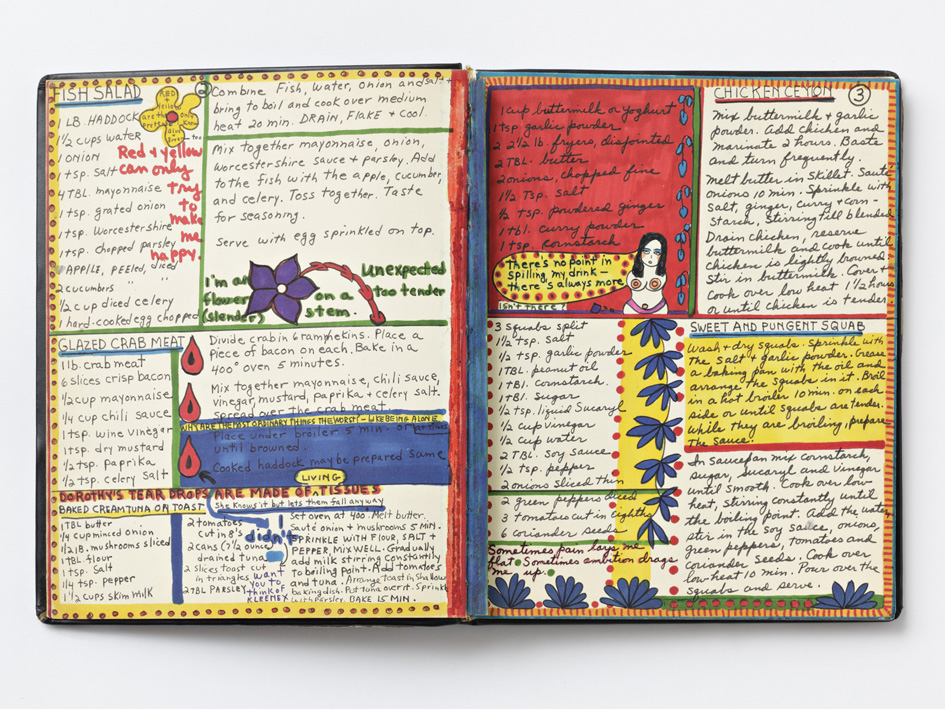 FISH SALAD
1 LB. HADDOCK
1/2 cups water
1 ONION
1 tsp. Salt
4 TBL. mayonnaise
1 tsp. grated onion
1 tsp. Worcestershire
1 tsp. chopped parsley
APPLE, PEELED, diced
2 cucumbers " "
1/2 cup diced celery
1 hard-cooked egg chopped
RED +
Yellow
are the
only
Prettiest
Red + yellow
can only
try
to
make
me
happy.
2
Combine Fish, water, onion and salt +
bring to boil and cook over medium
heat 20 min. DRAIN, FLAKE + COOL.
Mix together mayonnaise, onion,
worcestershire sauce + parsley. Add
to the fish with the apple, cucumber,
and celery. Toss together. Taste
for seasoning.
Serve with egg sprinkled on top.
I'm an Unexpected
flower on a too tender
(slender) stem.
GLAZED CRAB MEAT
1 lb. crab meat
6 slices crisp bacon
1/2 cup mayonnaise
1/4 cup chili sauce
1 tsp. wine vinegar
1 tsp. dry mustard
1/2 tsp. paprika
1/2 tsp. celery Salt
Divide crab in 6 ramekins. Place a
piece of bacon on each. Bake in a
400° oven 5 minutes.
Mix together mayonnaise, chili sauce,
vinegar, mustard, paprika + celery salt.
Spread over the crab meat.
WHY ARE THE MOST ORDINARY THINGS THE WORST - LIKE BEING ALONE
Place under broiler 5 min. or
until browned.
Cooked haddock may be prepared same
LIVING
DOROTHY'S TEAR DROPS ARE MADE OF TISSUES
She Knows it but lets them fall anyway
BAKED CREAM TUNA ON TOAST
1 TBL butter
1/4 cup minced onion
1/2 lB. mushrooms sliced
1 TBL flour
1 tsp. Salt
1/4 tsp. pepper
1 1/2 cups skim milk
2 tomatoes
cut in 8's
2 cans (7 1/2 ounce)
drained tuna
2 slices toast cut
in triangles
2 TBL PARSLEY
I
didn't
want
you to
think of
KLEENEX
Set oven at 400° Melt butter.
Sauté onion + mushrooms 5 MIN.
SPRINKLE WITH FLOUR, SALT +
PEPPER, MIX WELL. Gradually
add milk stirring Constantly
to boiling point. Add tomatoes
and tuna. Arrange toast in shallow
baking dish. Put tuna over it. Sprinkle
with parsley. BAKE 15 MIN.
1 cup buttermilk or Yoghurt
1 tsp garlic powder
2 2 1/2 lb. fryers, disjointed
2 TBL. butter
2 onions, chopped fine
1 1/2 Tsp. salt
1/2 tsp. powdered ginger
1 tbl. curry powder
1 tsp. cornstarch
there's no point in
spilling my drink -
there's always more
isn't there?
CHICKEN CEYLON
3
Mix buttermilk + garlic
powder. Add chicken and
marinate 2 hours. Baste
and turn frequently.
Melt butter in skillet. Sauté
onions 10 min. Sprinkle with
salt, ginger, curry + corn-
starch, stirring till blended
Drain chicken, reserve
buttermilk and cook until
chicken is lightly browned
Stir in buttermilk. Cover +
Cook over low heat 1 1/2 hours
or until chicken is tender
3 squabs split
1 1/2 tsp. salt
1/2 tsp. garlic powder
1 TBL. peanut oil
1 TBl. cornstarch.
1 TBl. Sugar
1/2 tsp. liquid Sucaryl
1/2 cup vinegar
1/2 cup water
2 TBl. Soy Sauce
1/2 tsp. pepper
2 onions sliced thin
2 green peppers diced
3 tomatoes cut in eighths
6 coriander seeds
Sometimes pain lays me
flat. Sometimes ambition drags
me up.
SWEET AND PUNGENT SQUAB
Wash + dry squabs. Sprinkle with
the Salt + garlic powder. Grease
a baking pan with the oil and
arrange the squabs in it. Broil
in a hot broiler 10 min. on each
side or until squabs are tender.
While they are broiling, prepare
the Sauce.
In Saucepan mix cornstarch,
sugar, sucaryl and vinegar
until smooth. Cook over low
heat, stirring constantly until
the boiling point. Add the water,
stir in the soy sauce, onions,
green peppers, tomatoes and
coriander seeds. Cook over
low heat 10 min. Pour over the
squabs and serve.